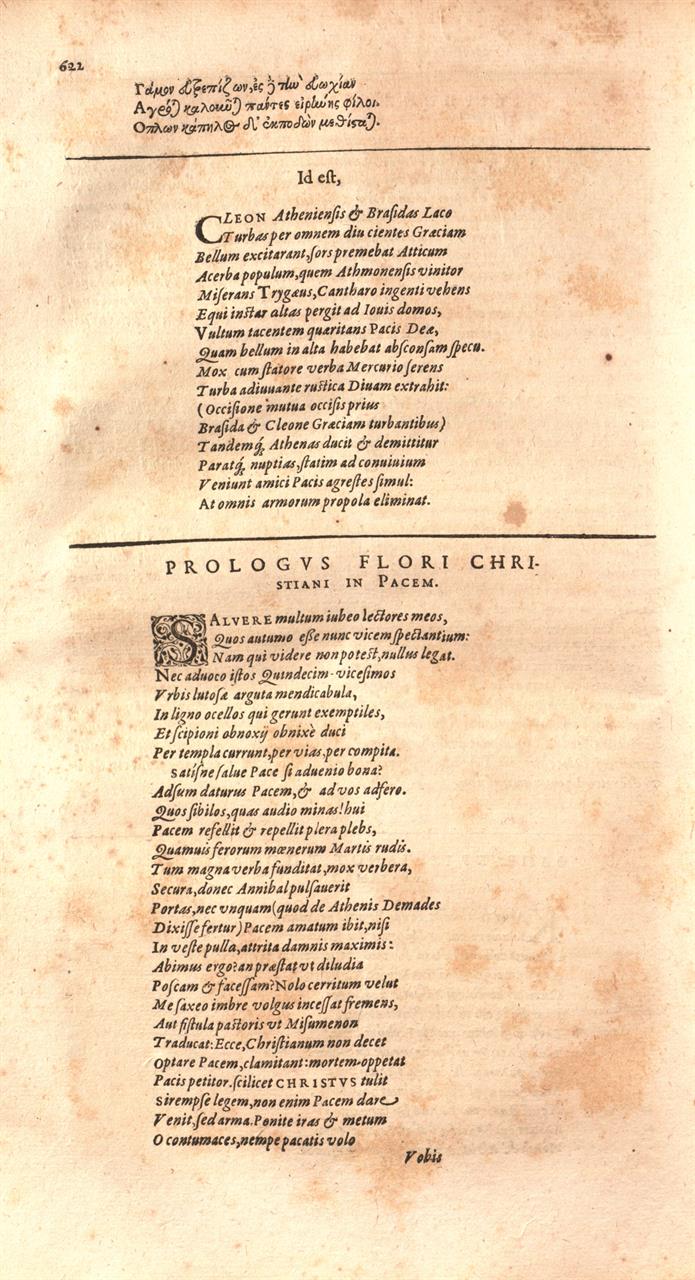 622
Γάμον ἐξεπίζων, ἐς δ τὴν ἐωχίαν
Αγρόθ καλοκῦθ πάντες εἰρήνης φίλοι.
Οπλων κάπηλος δ' ἐκποδὼν μεθίσταται.
Id est,
CLEON Atheniensis & Brasidas Laco
Turbas per omnem diu cientes Græciam
Bellum excitarant, sors premebat Atticum
Acerba populum, quem Athmonensis vinitor
Miserans Trygæus, Cantharo ingenti vehens
Equi instar altas pergit ad Iouis domos,
Vultum tacentem quæritans Pacis Deæ,
Quam bellum in alta habebat absconsam specu.
Mox cum statore verba Mercurio serens
Turba adiuuante rustica Diuam extrahit:
(Occisione mutua occisis prius
Brasida & Cleone Græciam turbantibus)
Tandemq́ Athenas ducit & demittitur
Paratq́ nuptias, statim ad conuiuium
Veniunt amici Pacis agrestes simul:
At omnis armorum propola eliminat.
PROLOGVS FLORI CHRI-
STIANI IN PACEM.
SALVERE multum iubeo lectores meos,
Quos autumo esse nunc vicem spectantium:
Nam qui videre non potest, nullus legat.
Nec aduoco istos Quindecim-vicesimos
Vrbis lutosæ arguta mendicabula,
In ligno ocellos qui gerunt exemptiles,
Et scipioni obnoxij obnixè duci
Per templa currunt, per vias, per compita.
Satisne salue Pace si aduenio bona?
Adsum daturus Pacem, & ad vos adfero.
Quos sibilos, quas audio minas! hui
Pacem refellit & repellit plera plebs,
Quamuis ferorum mœnerum Martis rudis.
Tum magna verba funditat, mox verbera,
Secura, donec Annibal pulsauerit
Portas, nec vnquam (quod de Athenis Demades
Dixisse fertur) Pacem amatum ibit, nisi
In veste pulla, attrita damnis maximis:
Abimus ergo? an præstat vt diludia
Poscam & facessam? Nolo cerritum velut
Me saxeo imbre volgus incessat fremens,
Aut fistula pastoris vt Misumenon
Traducat: Ecce, Christianum non decet
Optare Pacem, clamitant: mortem oppetat
Pacis petitor. scilicet CHRISTVS tulit
Sirempse legem, non enim Pacem dare
Venit, sed arma. Ponite iras & metum
O contumaces, nempe pacatis volo
Vobis